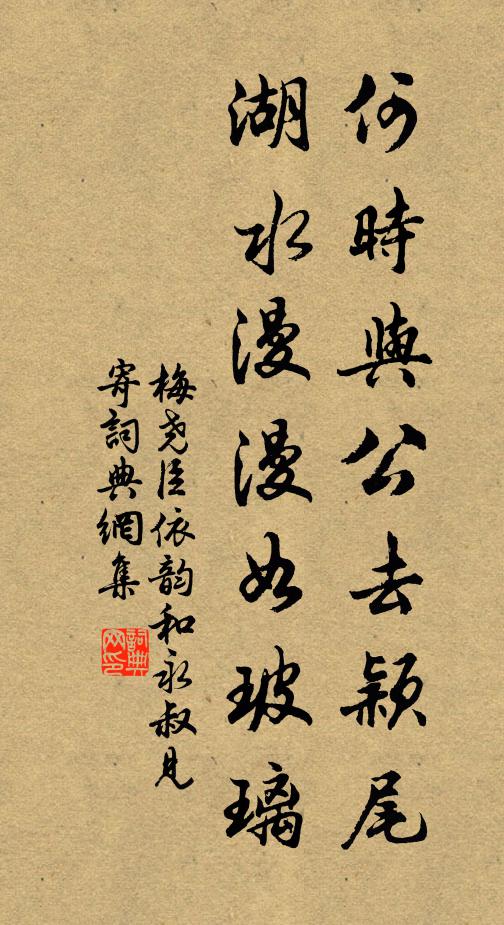 何時與公去潁尾
湖水漫漫如玻璃
梅堯臣依韵和永叔見
寄詞典網集
詞典网印